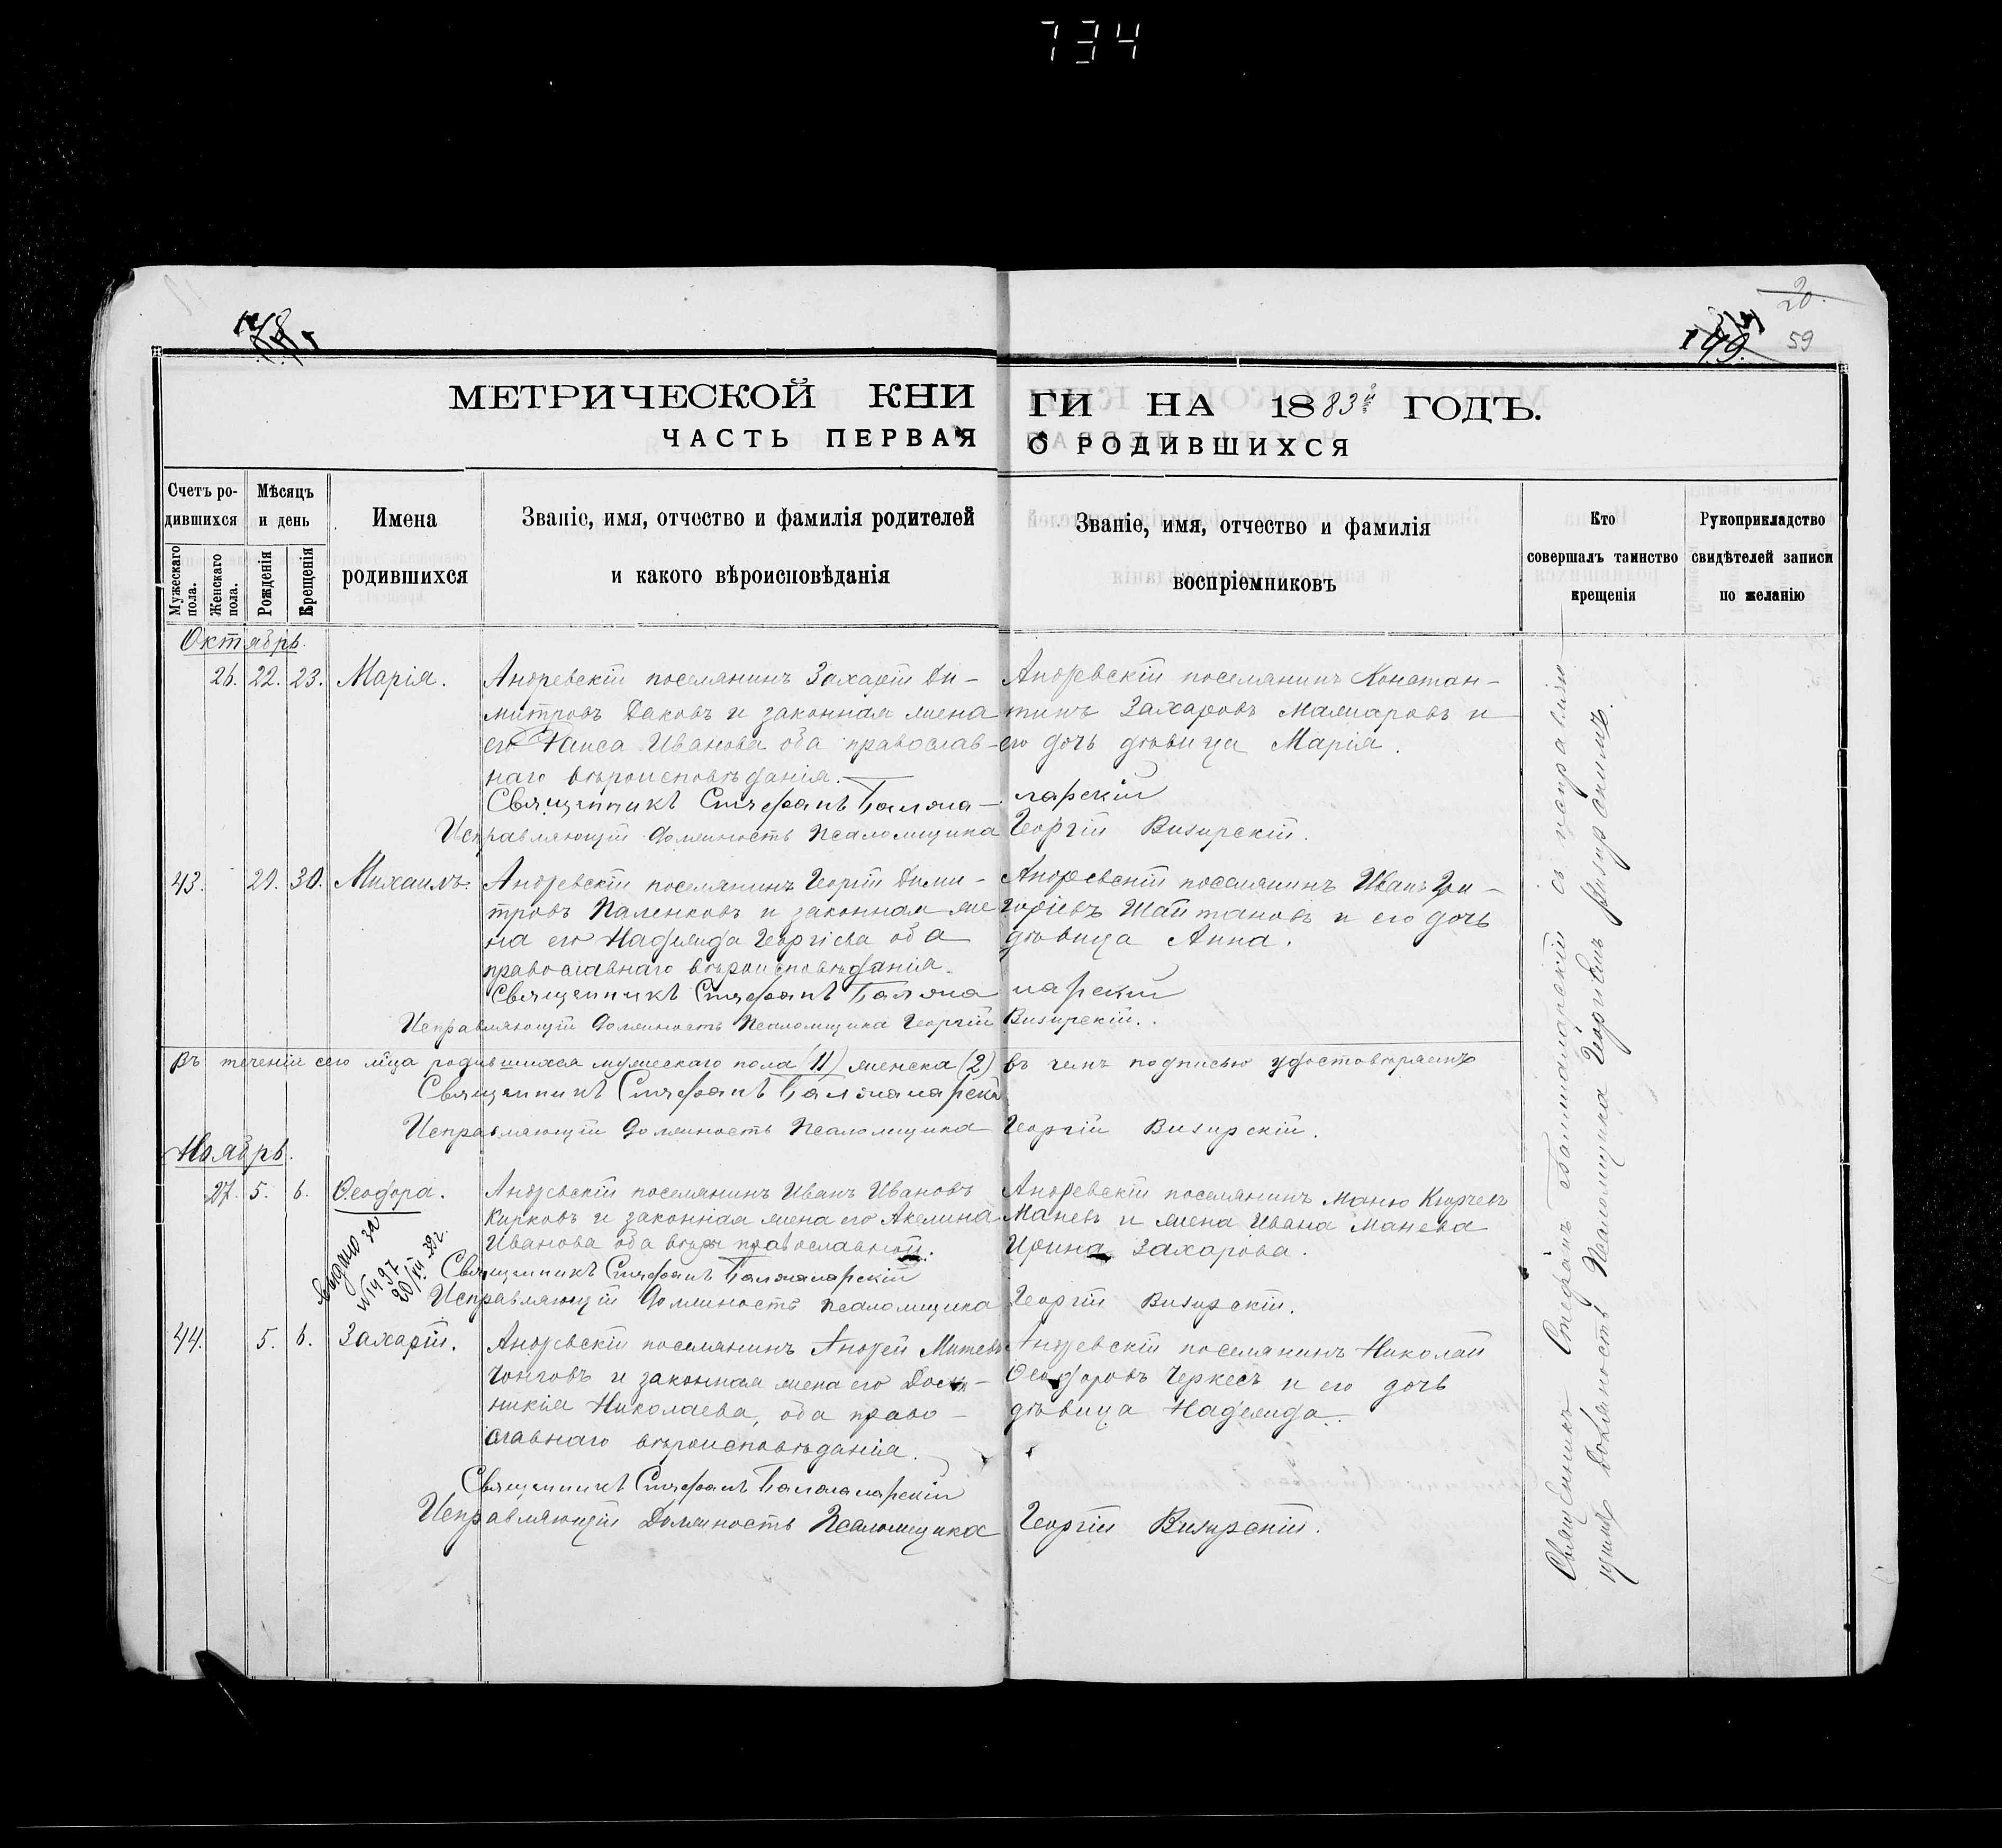 734
20.
59
МЕТРИЧЕСКОЙ КНИГИ НА 1883й ГОДЪ.
ЧАСТЬ ПЕРВАЯ О РОДИВШИХСЯ
Счетъ родившихся
Мѣсяцъ и день
Имена родившихся
Званіе, имя, отчество и фамилія родителей и какого вѣроисповѣданія
Званіе, имя, отчество и фамилія воспріемниковъ
Кто совершалъ таинство крещенія
Рукоприкладство свидѣтелей записи по желанію
Мужескаго пола.
Женскаго пола.
Рожденія
Крещенія
Октябрь.
26. 22. 23. Марія.
Андревскій поселянинъ Захарій Ди-
митровъ Даковъ и законная жена
его Таиса Иванова оба православ-
наго вѣроисповѣданія.
Андревскій поселянинъ Констан-
тинъ Захаровъ и
его дочь дѣвица Марія.
Священникъ Стефанъ Балжаларскій
Исправляющій должность Псаломщика Георгій Визирскій.
43. 29. 30. Михаилъ.
Андревскій поселянинъ Георгій Дими-
тровъ Паленковъ и законная же-
на его Надежда Георгіева оба
православнаго вѣроисповѣданія.
Андревскій поселянинъ Иванъ Гри-
горіевъ Шайтановъ и его дочь
дѣвица Анна.
Священникъ Стефанъ Балжаларскій
Исправляющій должность Псаломщика Георгій Визирскій.
Въ теченіи сего мѣца родившихся мужескаго пола (11) женска (2) въ чемъ подписью удостовѣряемъ
Священникъ Стефанъ Балжаларскій
Исправляющій должность Псаломщика Георгій Визирскій.
Ноябрь.
27. 5. 6. Ѳеодора.
выдано за
Андревскій поселянинъ Иванъ Ивановъ
Кирковъ и законная жена его Акелина
Иванова оба вѣры православной.
Андревскій поселянинъ Маню Кюрчевъ
Маневъ и жена Ивана Манева
Ирина Захарова.
Священникъ Стефанъ Балжаларскій
Исправляющій должность псаломщика Георгій Визирскій.
44. 5. 6. Захарій.
Андревскій поселянинъ Андрей Митевъ
Чонговъ и законная жена его Доси-
никія Николаева, оба право-
славнаго вѣроисповѣданія.
Андревскій поселянинъ Николай
Ѳеодоровъ Черкесъ и его дочь
дѣвица Надежда.
Священникъ Стефанъ Балжаларскій
Исправляющій Должность Псаломщика Георгій Визирскій.
Священникъ Стефанъ Балжаларскій съ исправляю-
щимъ должность Псаломщика Георгіемъ Визирскимъ.